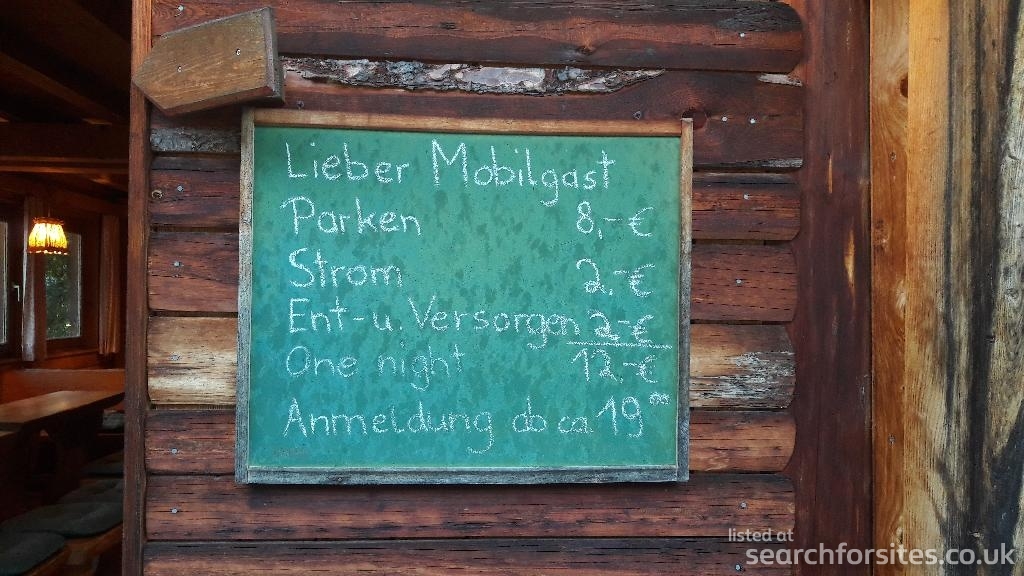 Lieber Mobilgast
Parken 8,-€
Strom 2,-€
Ent-u. Versorgen 2,-€
One night 12,-€
Anmeldung ab ca. 19⁰⁰
listed at
searchforsites.co.uk